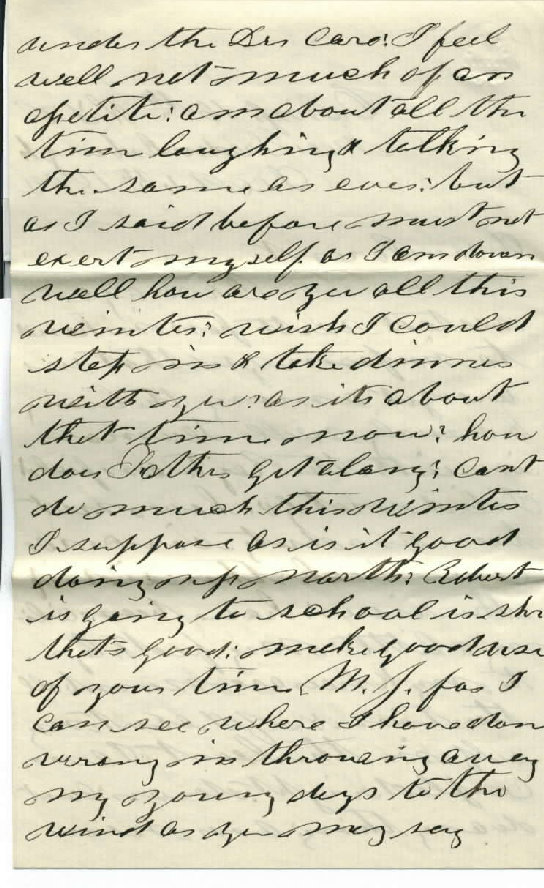 under the Drs Care: I feel
well not much of an
apetite: am about all the
time laughing & talking
the same as ever: but
as I said before must not
exert myself as I am down
well how are you all this
winter: wish I could
step in & take dinner
with you: as its about
that time now: how
does Father get along: cant
do much this winter
I suppose as is it good
doing up north: Edwert
is going to school is she
thats good: make good use
of your time M. J. for I
can see where I have don
wrong in throwing away
my young days to the
wind as you may say